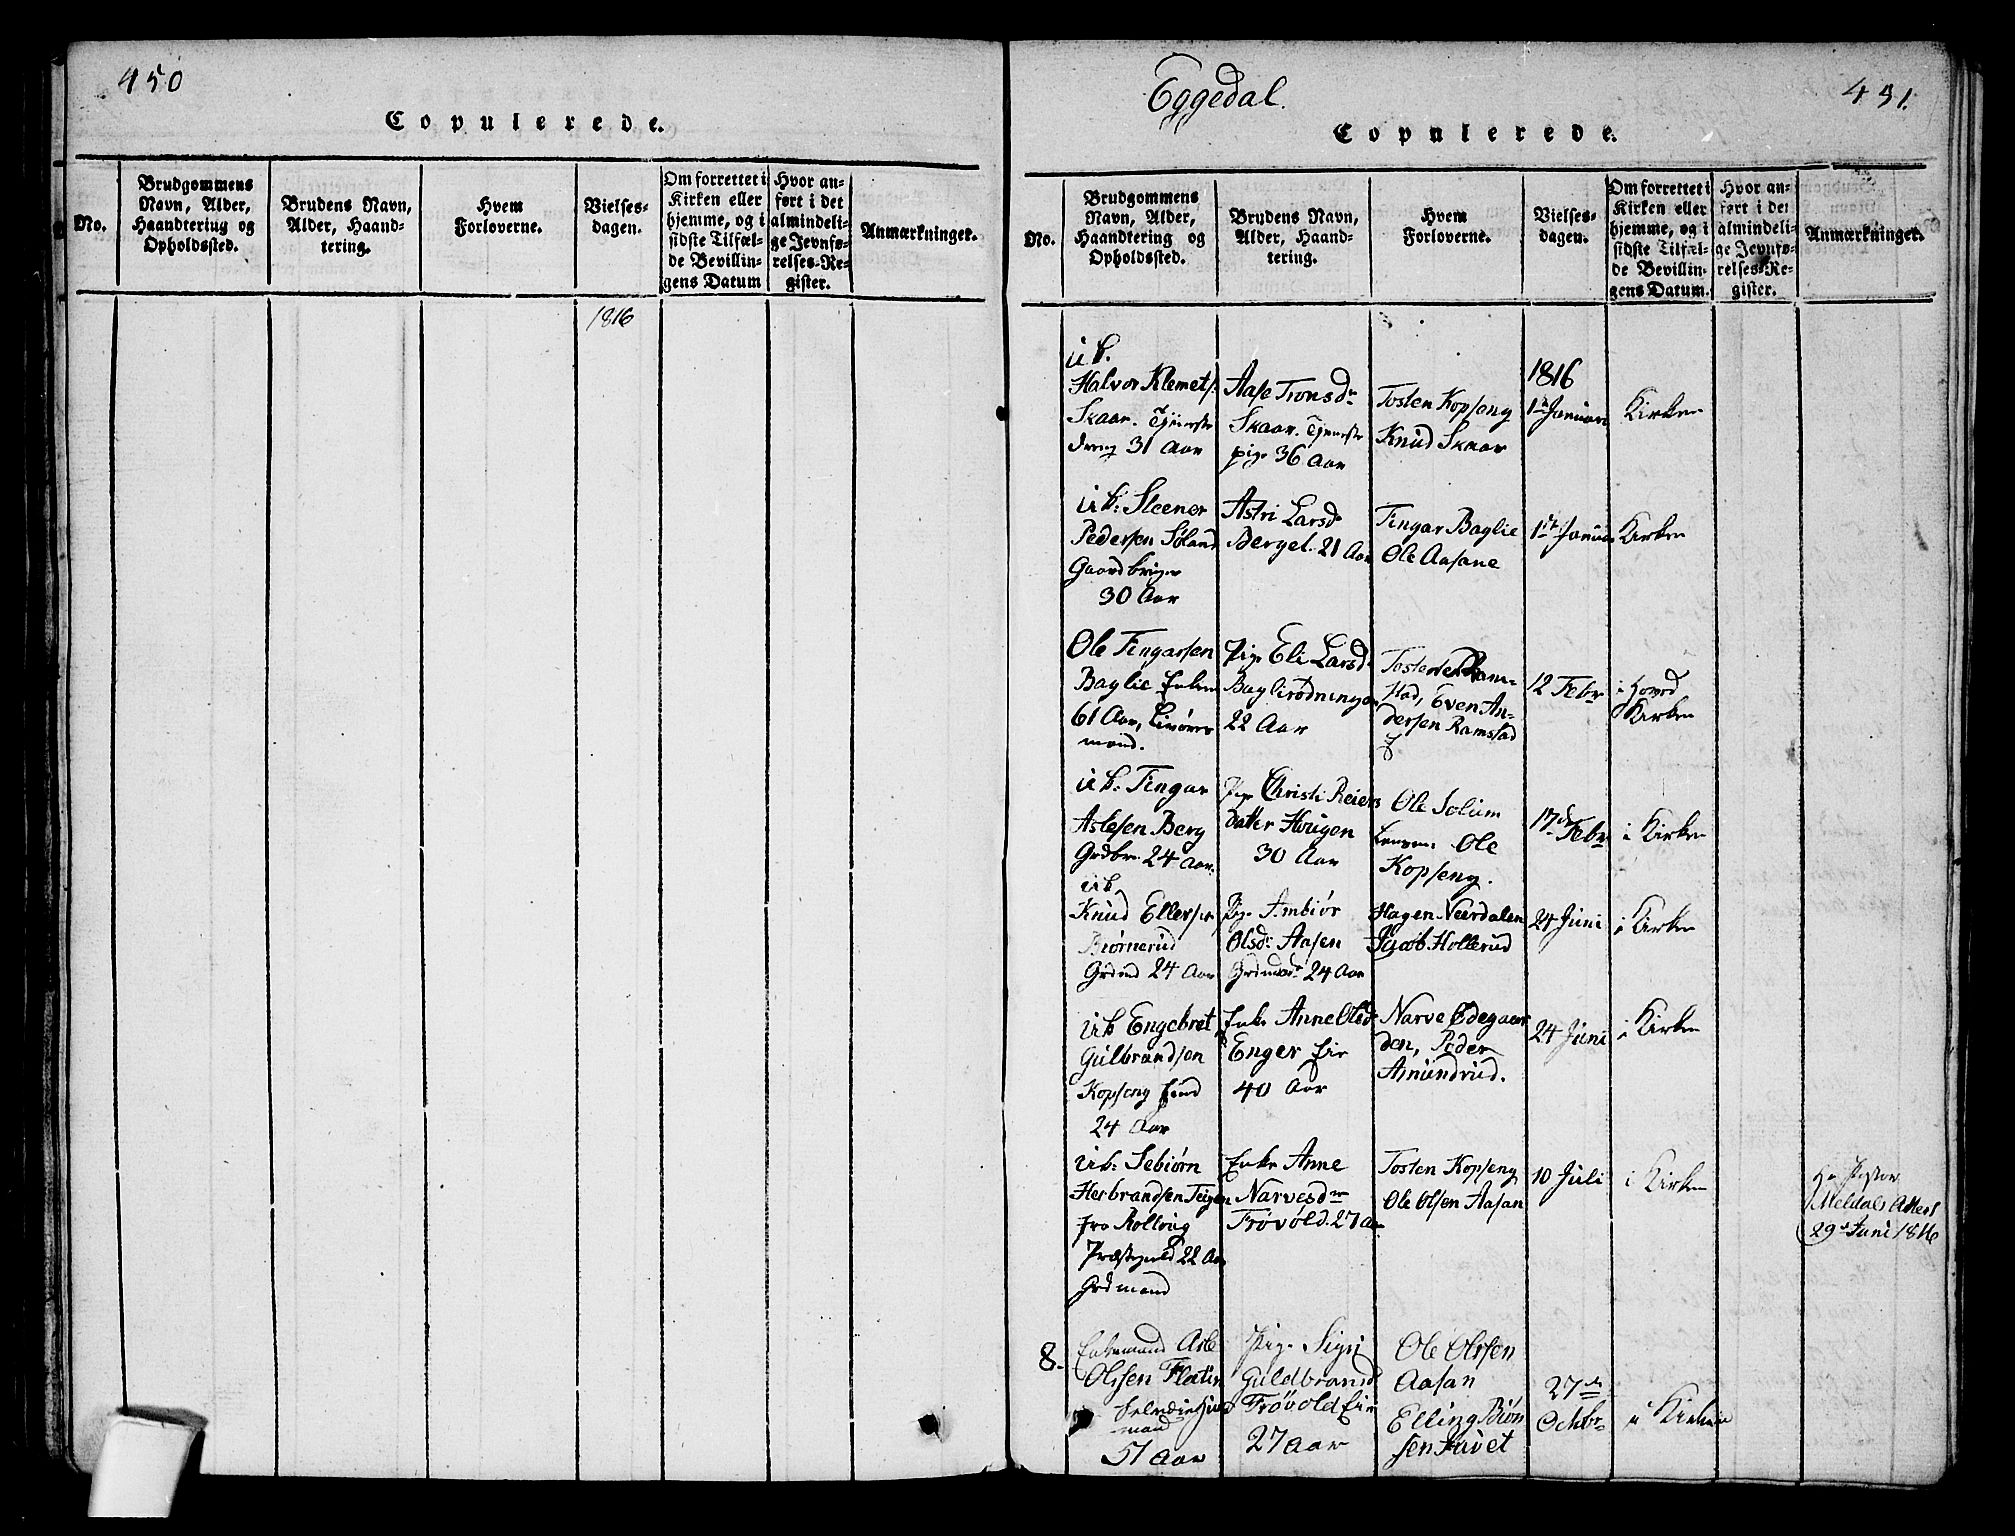 450
Copulerede.
No.
Brudgommens
Navn, Alder,
Haandtering og
Opholdssted.
Brudens Navn,
Alder, Haand-
tering.
Hvem
Forloverne.
Vielses-
dagen.
Om forrettet i
Kirken eller
hjemme, og i
sidste Tilfæl-
de Bevillin-
gens Datum
Hvor an-
ført i det
almindeli-
ge Jevnfø-
relses-Re-
gister.
Anmærkninger.
1816
Eggedal.
451.
Copulerede.
No.
Brudgommens
Navn, Alder,
Haandtering og
Opholdssted.
Brudens Navn,
Alder, Haand-
tering.
Hvem
Forloverne.
Vielses-
dagen.
Om forrettet i
Kirken eller
hjemme, og i
sidste Tilfæl-
de Bevillin-
gens Datum.
Hvor an-
ført i det
almindeli-
ge Jevnfø-
relses-Re-
gister.
Anmærkninger.
Halvor Klemets.
Skaar. Tjeneste
dreng 31 Aar
Aase Tronsdr
Skaar. Tjeneste
pige 36 Aar
Tosten Kopseng
Knud Skaar
1816
1 Januar
Kirken
Steener
Pedersen Søland
Gaardbruger
30 Aar
Astri Larsd
Berget. 21 Aar
Tingar Baglie
Ole Aasane
1 Januar
Kirken
Ole Tingarsen
Baglie Enkem
61 Aar,
mand.
Pige Eli Larsd.
Baglirødningen
22 Aar
Tosten Ram-
stad, Even An-
dersen Ramstad
12 Febr
i Hoved
Kirken
Tingar
Aslesen Berg
Grdbr. 24 Aar.
Pige Christi Reiers
datter Hougen
30 Aar
Ole Solum
Ole
Kopseng.
17d Febr
i Kirken
Knud Ellefsen
Biørnerud
24 Aar
Pige Ambiør
Olsdr Aasen
24 Aar
Hagen Nærdalen
Jacob Hollerud
24 Juni
i Kirken
Engebret
Gulbrandsen
Kopseng
24 Aar
Enke Anne Olsd
Enger Eie
40 Aar
Narve Ødegaar
den, Peder
Amundrud.
24 Juni
i Kirken
Sebiørn
Herbrandsen Teigen
fra Rolloug
Præstegield 22 Aar
Grdmand
Enke Anne
Narvesdr
Frøvold. 27 Aar
Tosten Kopseng
Ole Olsen Aasan
10 Juli
i Kirken
Hr Pastor
Meldals Attest
29d Juni 1816
8.
Enkemand Asle
Olssen Flatin
mand
51 Aar
Pige Sigri
Guldbrandsd
Frøvold Eie
27 Aar
Ole Olssen
Aasan
Elling Biøn
sen Juvet
27de
Octbr
i Kirken